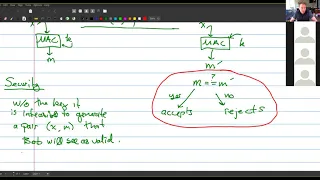 x
MAC
k
m
x
MAC
k
m'
?
m == m'
yes
no
accepts
rejects
Security
w/o the key it
is infeasible to generate
a pair (x, m) that
Bob will see as valid.